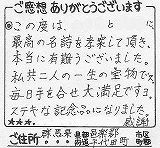 ご感想 ありがとうございます
◎この度は、 と
最高の名詩を考案して頂き、
本当に有難うございました。
私共二人の一生の宝物です。
毎日手を合せ大満足ですヨ。
ステキな記念品になりました。
★★★。 感謝
ご住所 群馬県 邑楽郡 千代田町